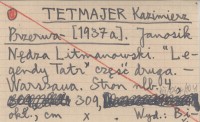 TETMAJER Kazimierz
Przerwa- [1937a]. Janosik
Nędza Litmanowski. "Le-
gendy Tatr" część druga. -
Warszawa. Stron nlb.4,
309,
okł., cm x . Wyd.: Bi